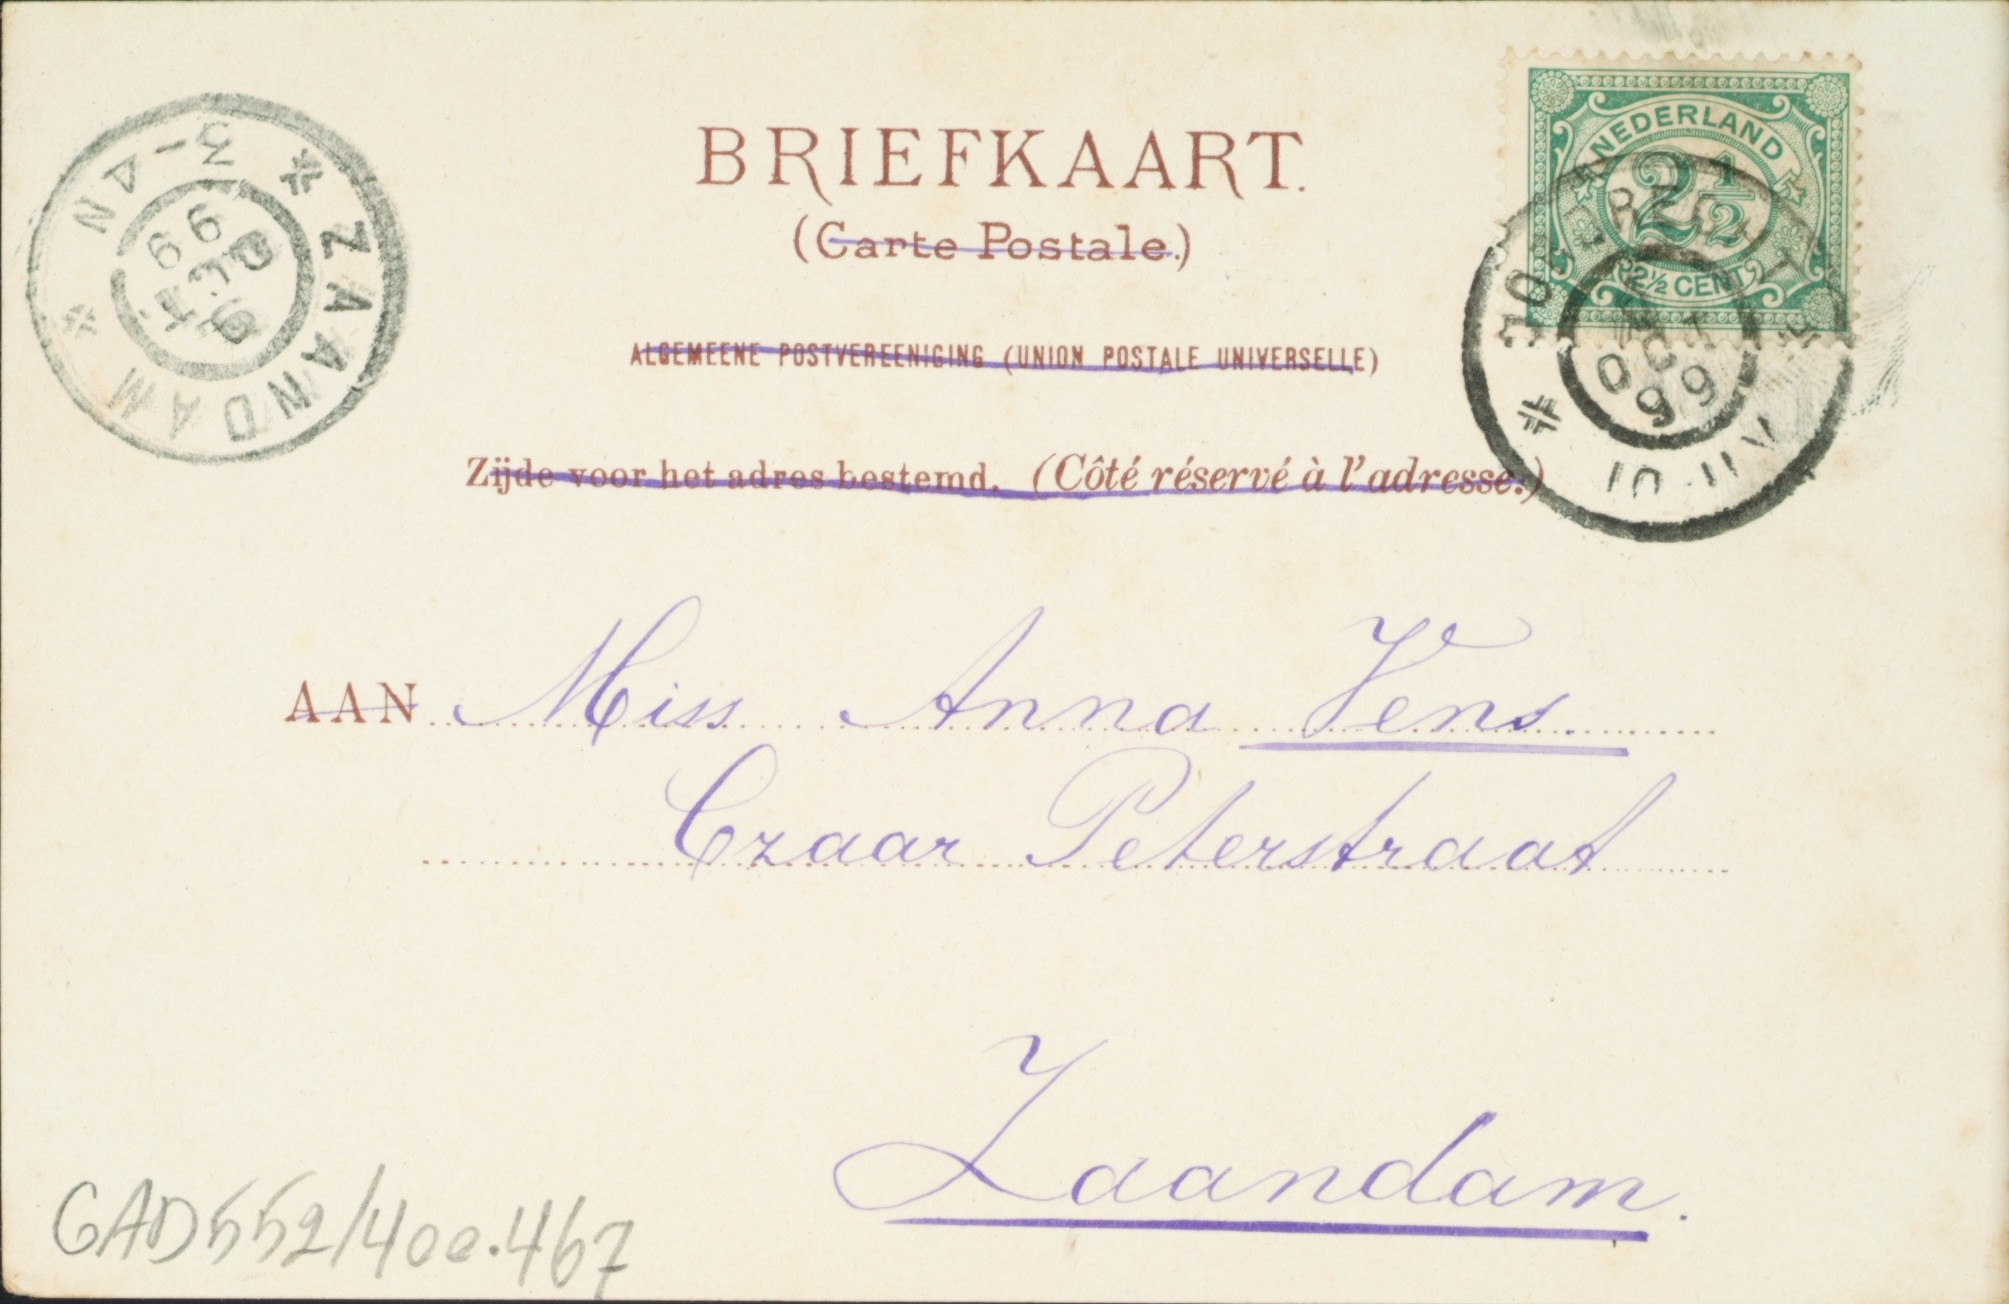 BRIEFKAART.
(Carte Postale.)
ALGEMEENE POSTVEREENIGING (UNION POSTALE UNIVERSELLE)
Zijde voor het adres bestemd. (Côté réservé à l'adresse.)
NEDERLAND
2½
2½ CENT
* ZAANDAM *
3-4N
99
AAN Miss Anna Vens.
Czaar Peterstraat
Zaandam.
GAD 552/400.467